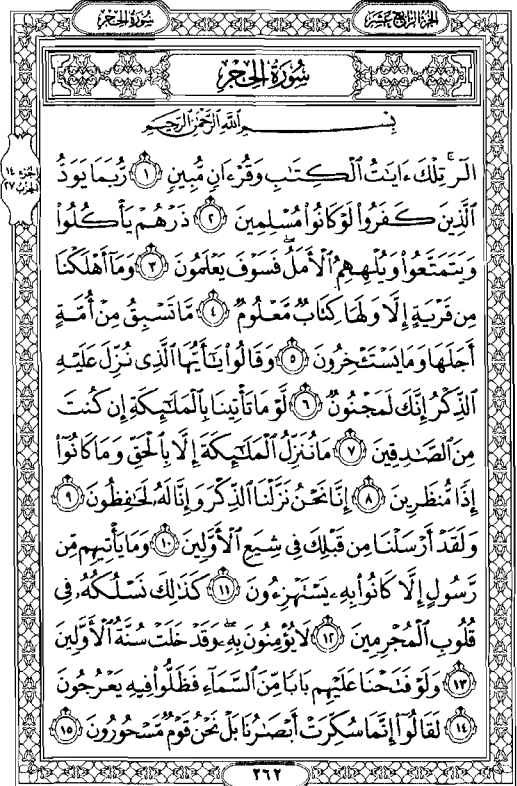 الجزء الرابع عشر
سورة الحجر
سُورَةُ الحِجْرِ
بِسْمِ اللَّهِ الرَّحْمَٰنِ الرَّحِيمِ
الجزء ١٤
الحزب ٢٧
الٓرۚ تِلْكَ ءَايَٰتُ ٱلْكِتَٰبِ وَقُرْءَانٍ مُّبِينٍ ١ رُّبَمَا يَوَدُّ
ٱلَّذِينَ كَفَرُوا۟ لَوْ كَانُوا۟ مُسْلِمِينَ ٢ ذَرْهُمْ يَأْكُلُوا۟
وَيَتَمَتَّعُوا۟ وَيُلْهِهِمُ ٱلْأَمَلُۖ فَسَوْفَ يَعْلَمُونَ ٣ وَمَآ أَهْلَكْنَا
مِن قَرْيَةٍ إِلَّا وَلَهَا كِتَابٌ مَّعْلُومٌ ٤ مَّا تَسْبِقُ مِنْ أُمَّةٍ
أَجَلَهَا وَمَا يَسْتَـْٔخِرُونَ ٥ وَقَالُوا۟ يَٰٓأَيُّهَا ٱلَّذِى نُزِّلَ عَلَيْهِ
ٱلذِّكْرُ إِنَّكَ لَمَجْنُونٌ ٦ لَّوْ مَا تَأْتِينَا بِٱلْمَلَٰٓئِكَةِ إِن كُنتَ
مِنَ ٱلصَّٰدِقِينَ ٧ مَا نُنَزِّلُ ٱلْمَلَٰٓئِكَةَ إِلَّا بِٱلْحَقِّ وَمَا كَانُوٓا۟
إِذًا مُّنظَرِينَ ٨ إِنَّا نَحْنُ نَزَّلْنَا ٱلذِّكْرَ وَإِنَّا لَهُۥ لَحَٰفِظُونَ ٩
وَلَقَدْ أَرْسَلْنَا مِن قَبْلِكَ فِى شِيَعِ ٱلْأَوَّلِينَ ١٠ وَمَا يَأْتِيهِم مِّن
رَّسُولٍ إِلَّا كَانُوا۟ بِهِۦ يَسْتَهْزِءُونَ ١١ كَذَٰلِكَ نَسْلُكُهُۥ فِى
قُلُوبِ ٱلْمُجْرِمِينَ ١٢ لَا يُؤْمِنُونَ بِهِۦۖ وَقَدْ خَلَتْ سُنَّةُ ٱلْأَوَّلِينَ
١٣ وَلَوْ فَتَحْنَا عَلَيْهِم بَابًا مِّنَ ٱلسَّمَآءِ فَظَلُّوا۟ فِيهِ يَعْرُجُونَ
١٤ لَقَالُوٓا۟ إِنَّمَا سُكِّرَتْ أَبْصَٰرُنَا بَلْ نَحْنُ قَوْمٌ مَّسْحُورُونَ ١٥
٢٦٢